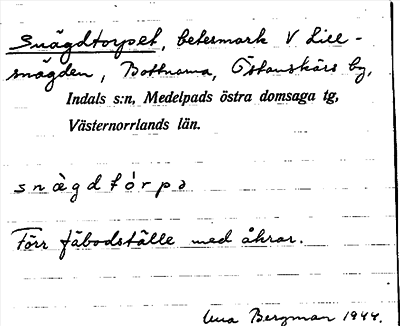 Snägdtorpet, betesmark V Lill-
snägden, Bottnarna, Östanskärs by,
Indals s:n, Medelpads östra domsaga tg,
Västernorrlands län.
snägdtórpə
Förr fäbodställe med åkrar.
Bergman 1944.